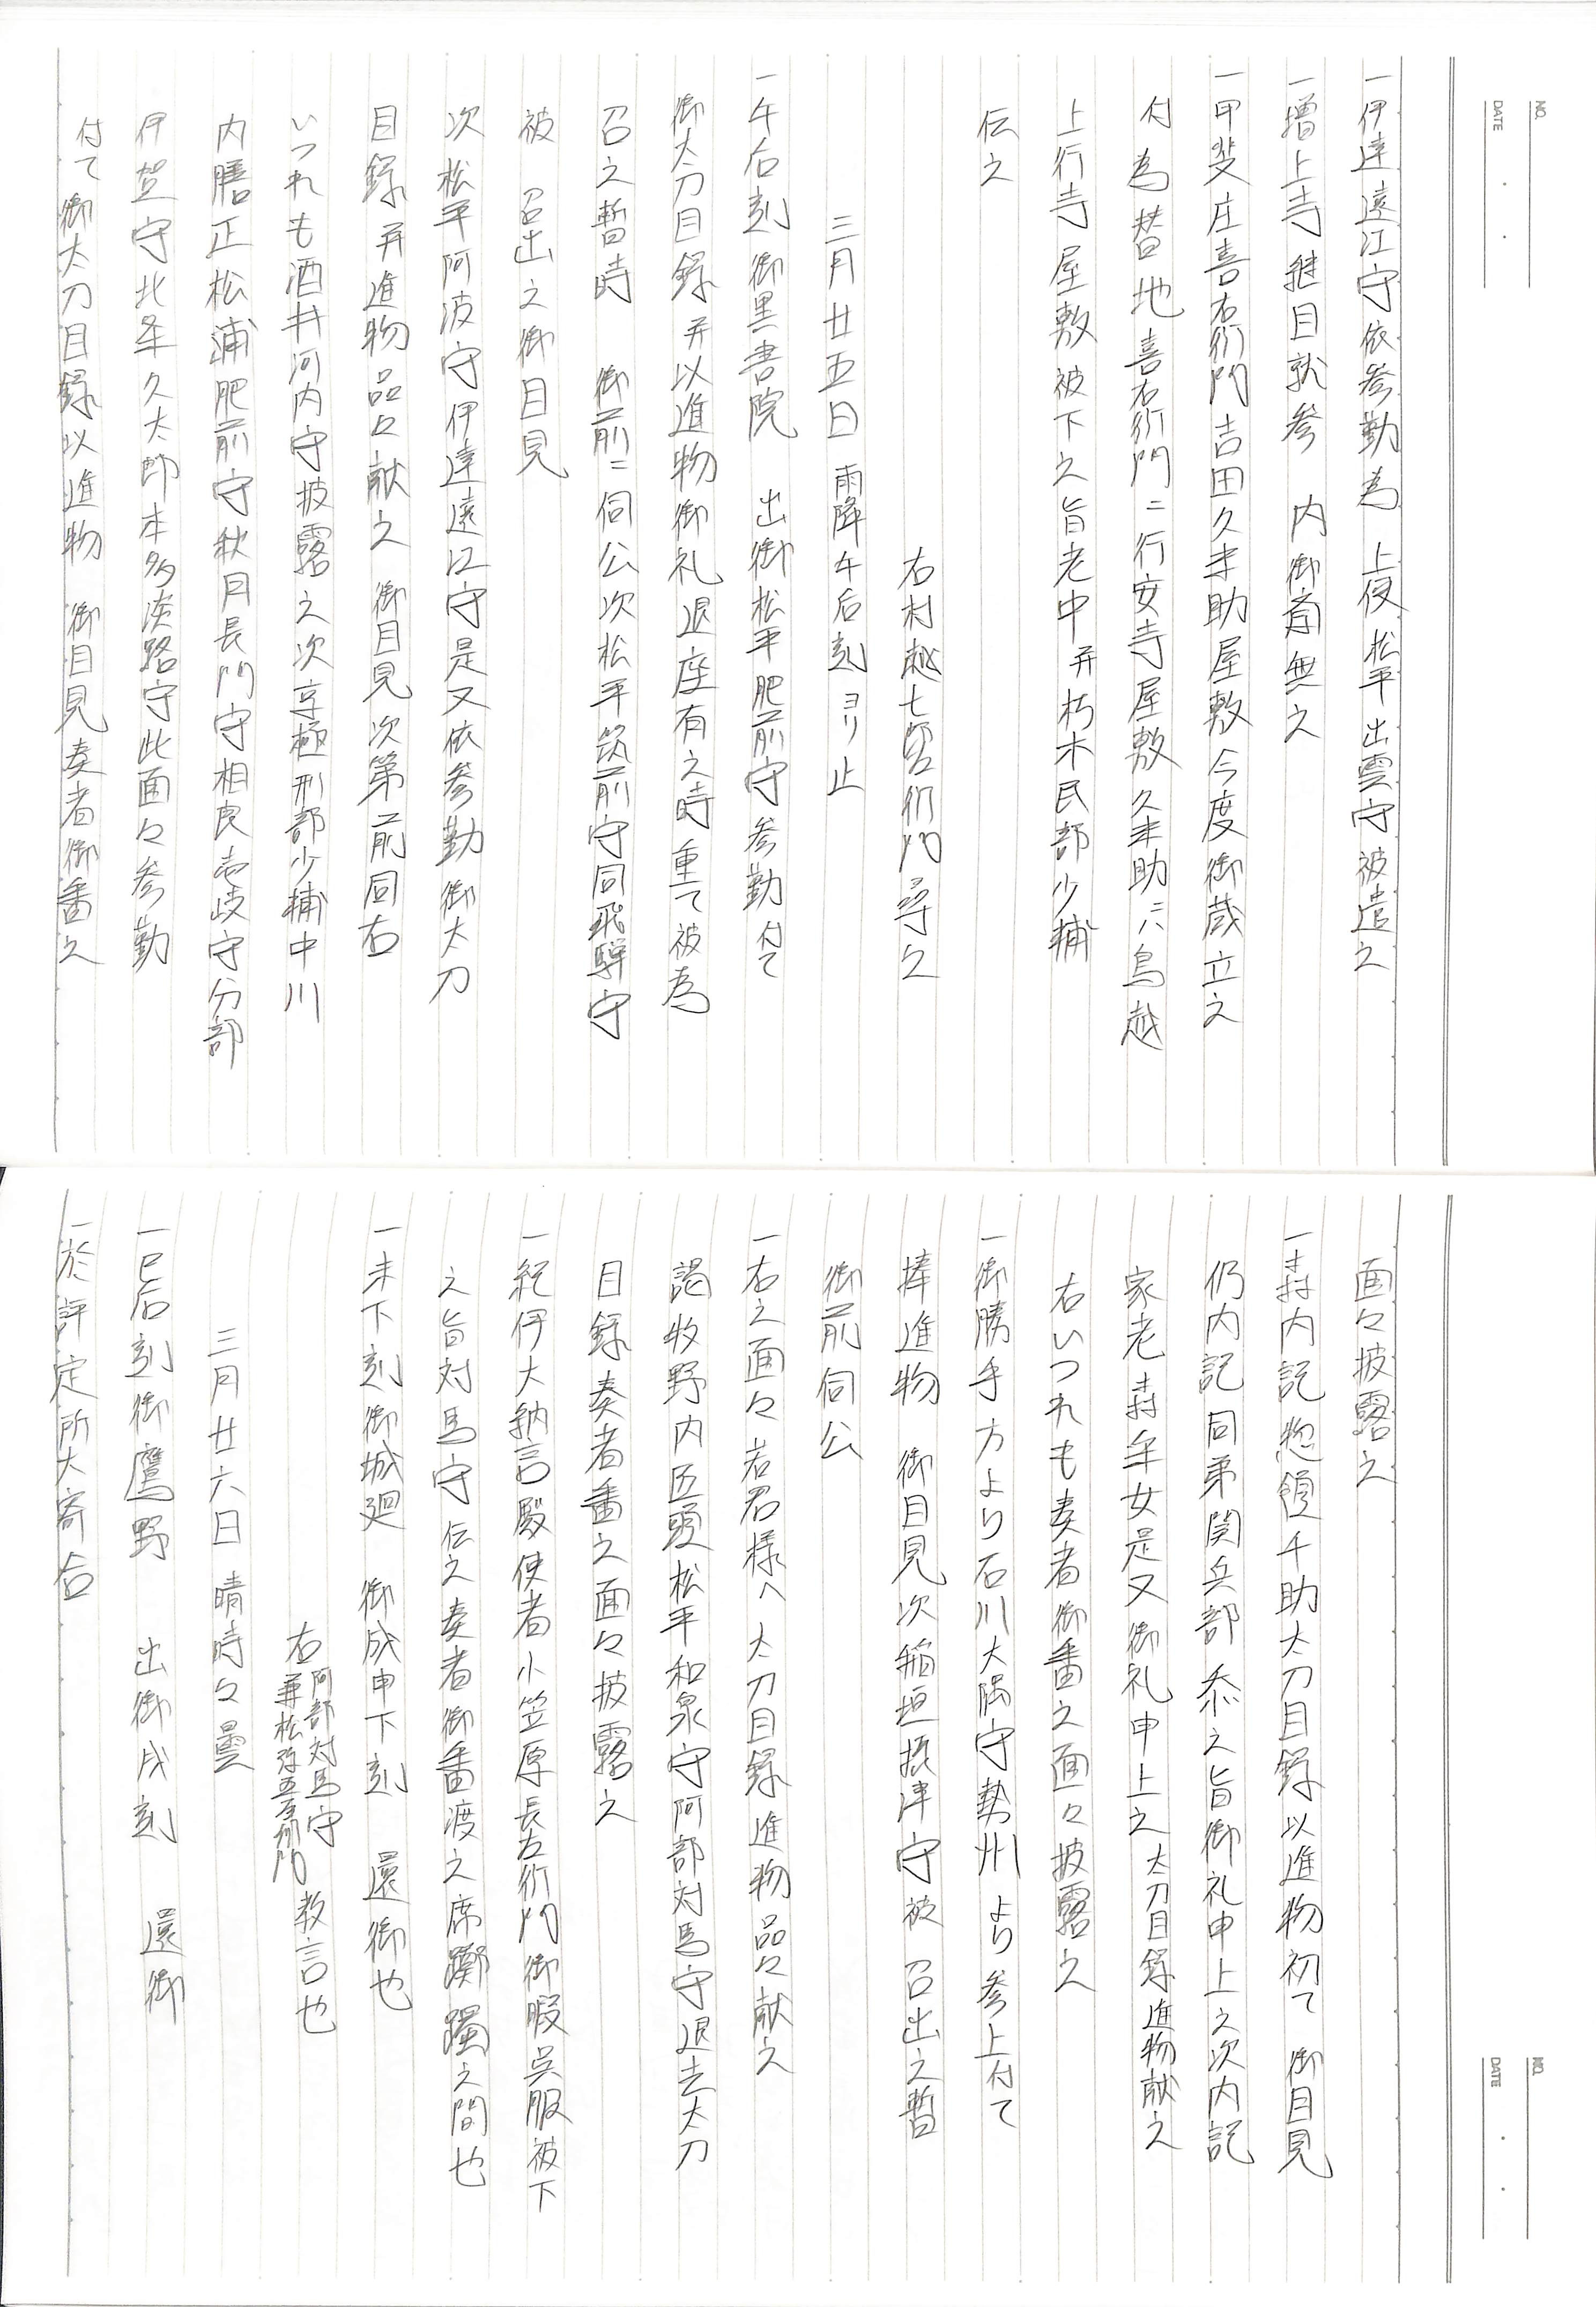 NO.
DATE
一伊達遠江守依参勤為　上使松平出雲守被遣之
一増上寺継目就参　内御斎無之
一甲斐庄喜右衛門吉田久米助屋敷今度御蔵立之
付為替地喜右衛門ニ行安寺屋敷久米助ニハ鳥越
上行寺屋敷被下之旨老中并朽木民部少輔
伝之
右村越七郎右衛門尋之
三月廿五日　雨降午后刻ヨリ止
一午后刻御黒書院　出御松平肥前守参勤付て
御太刀目録并以進物御礼退座有之時重て被為
召之暫時　御前ニ伺公次松平筑前守同飛騨守
被　召出之御目見
次松平阿波守伊達遠江守是又依参勤御太刀
目録并進物品々献之　御目見次第前同右
いつれも酒井河内守披露之次京極刑部少輔中川
内膳正松浦肥前守秋月長門守相良壱岐守分部
伊賀守北条久太郎本多淡路守此面々参勤
付て御太刀目録以進物　御目見奏者御番之
NO.
DATE
面々披露之
一森内記惣領千助太刀目録以進物初て　御目見
仍内記同弟関兵部忝之旨御礼申上之次内記
家老森采女是又御礼申上之太刀目録進物献之
右いつれも奏者御番之面々披露之
一御勝手方より石川大隅守勢州より参上付て
捧進物　御目見次稲垣摂津守被　召出之暫
御前伺公
一右之面々若君様へ太刀目録進物品々献之
謁牧野内匠頭松平和泉守阿部対馬守退去太刀
目録奏者番之面々披露之
一紀伊大納言殿使者小笠原長左衛門御暇呉服被下
之旨対馬守伝之奏者御番渡之席躑躅之間也
一未下刻御城廻　御成申下刻　還御也
右阿部対馬守兼松弥五左衛門教言也
三月廿六日　晴時々曇
一巳后刻御鷹野　出御戌刻　還御
一於評定所大寄合